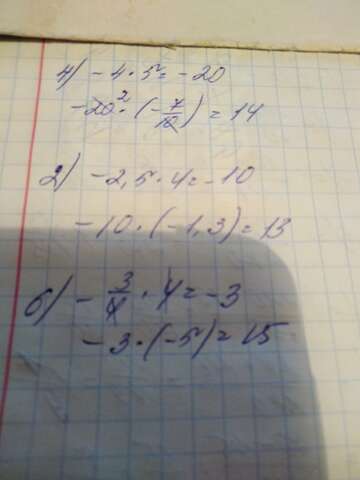 4) -4 · 5 = -20
-20² · (-7/10) = 14
2) -2,5 · 4 = -10
-10 · (-1,3) = 13
6) -3/4 · 4 = -3
-3 · (-5) = 15